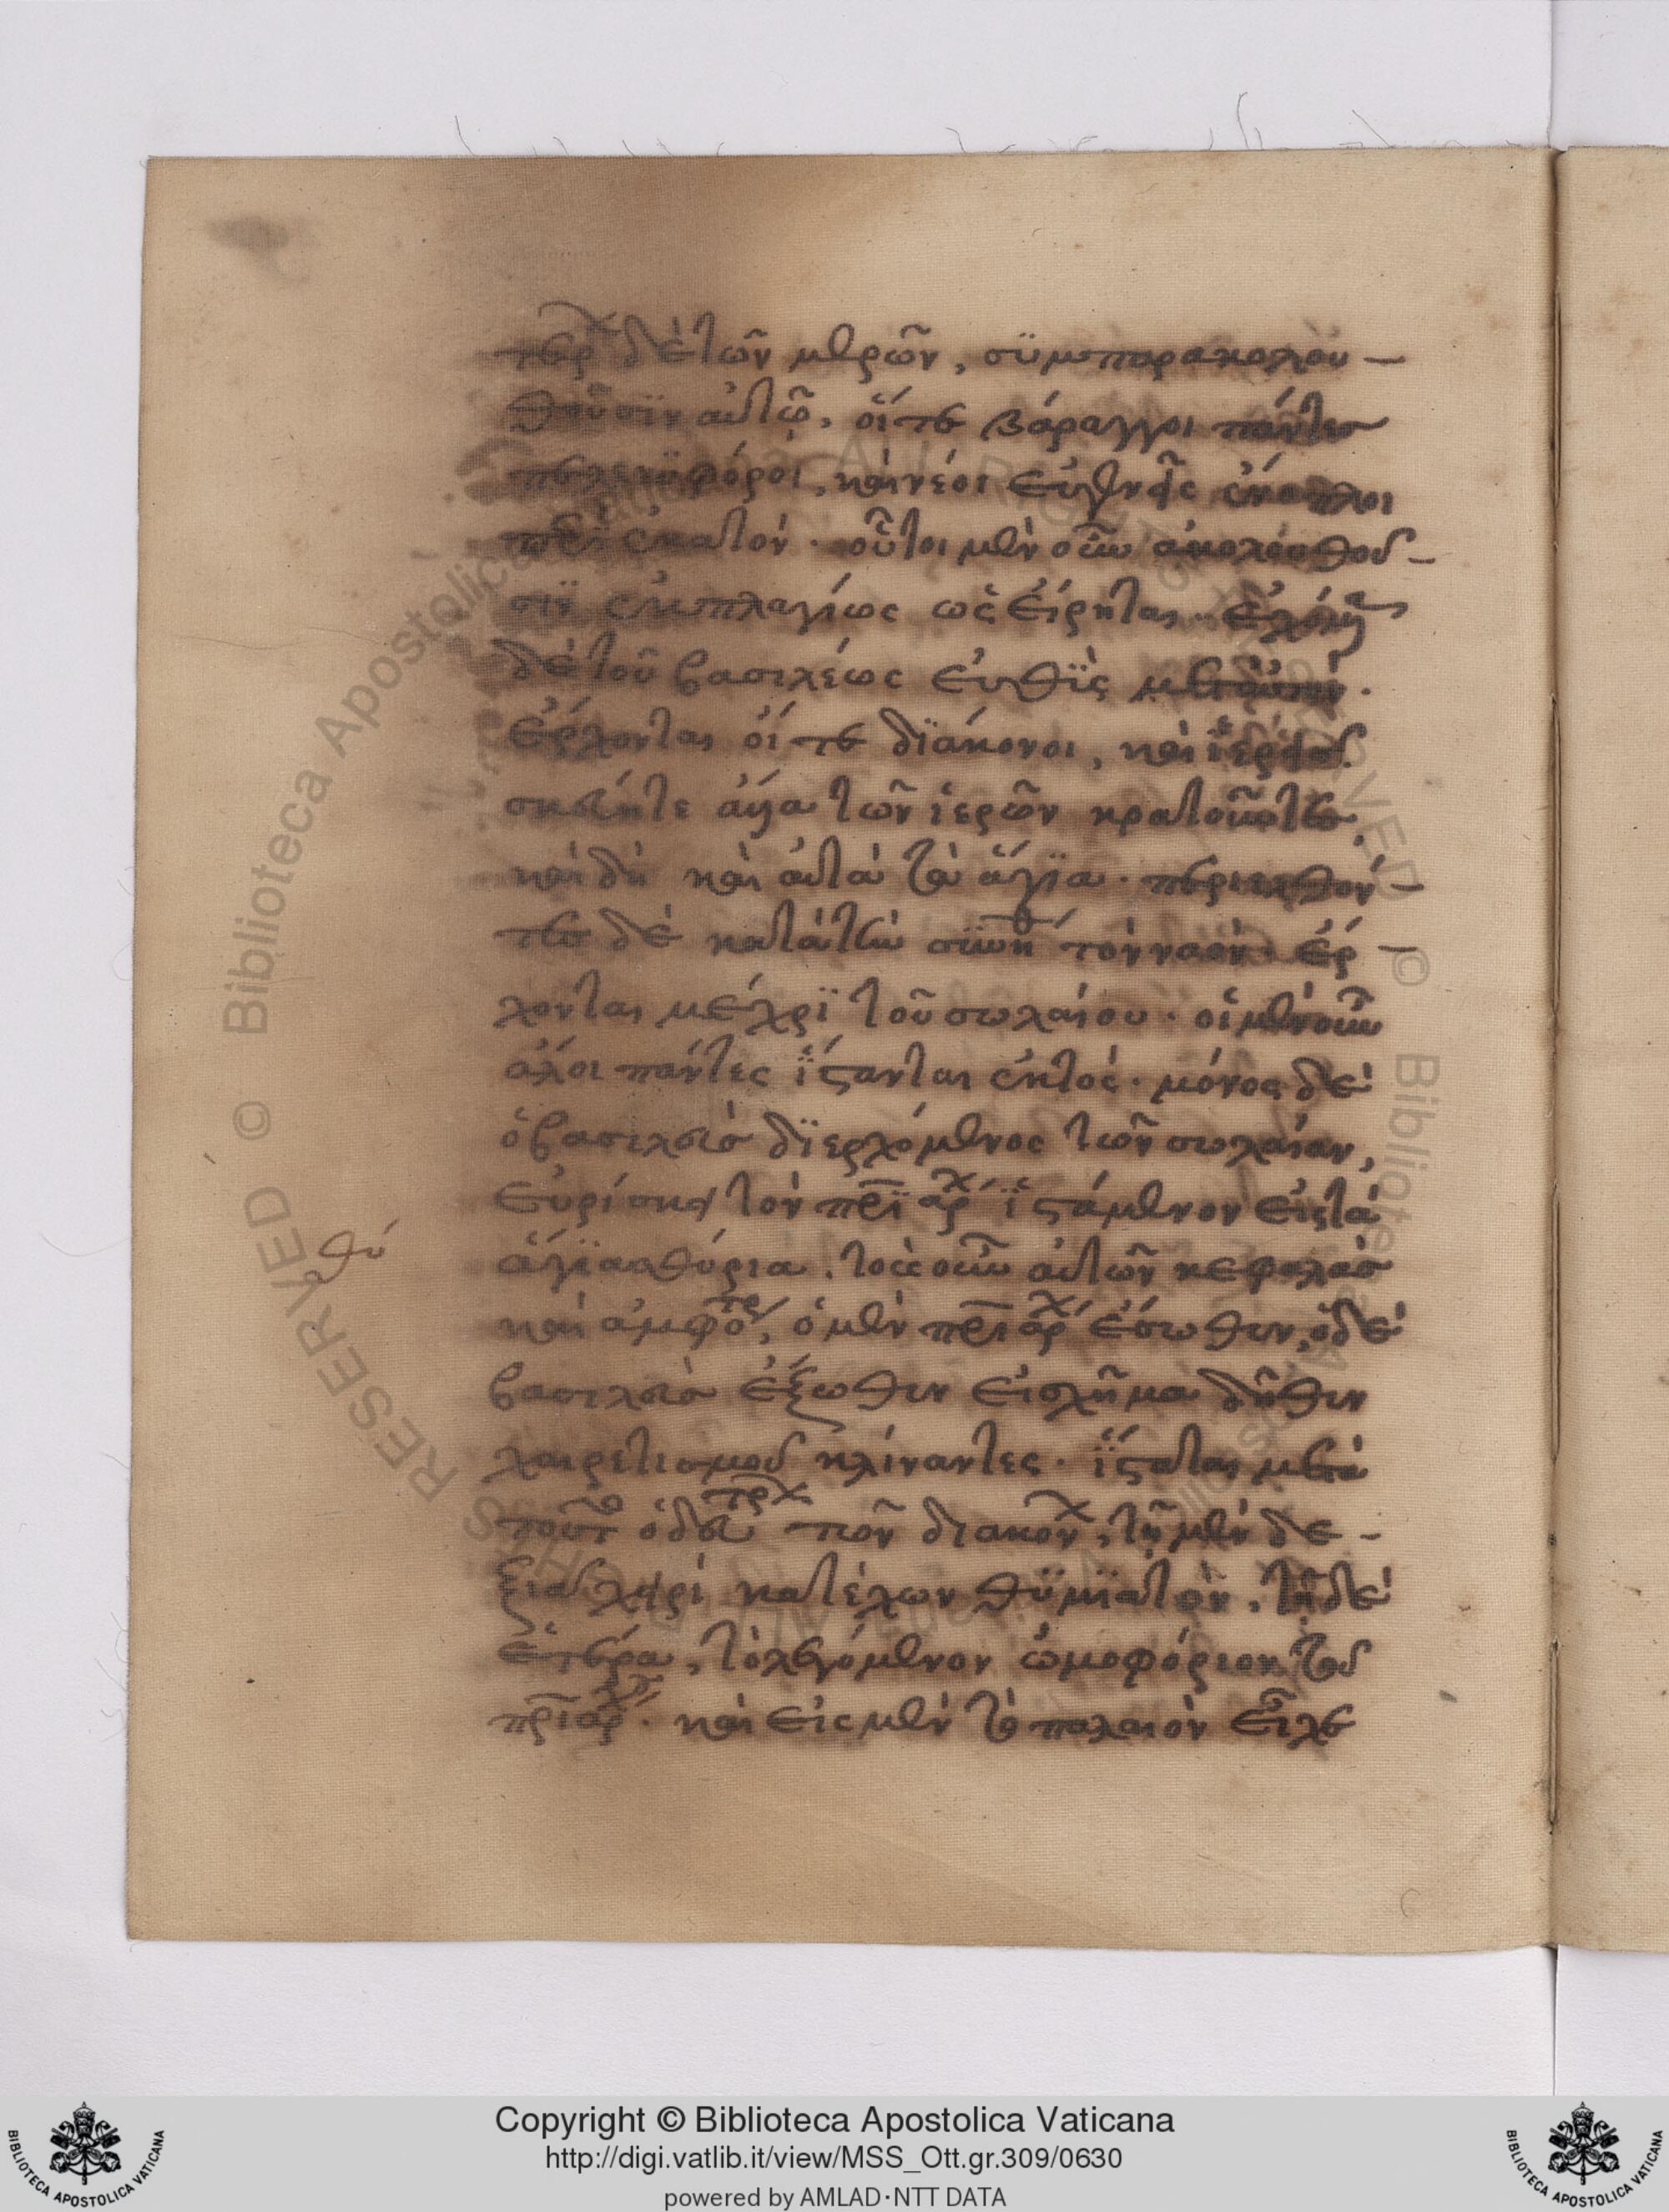 τερ(χ) δὲ τῶν μερῶν, σϋμπαρακολου-
θοῦσϊν αὐτῶ, οἵ τε βάραγγοι πάντες
πελεκϋφόροι, καὶ νέοι εὐγενεῖς ἔνοπλοι
ὡσεὶ ἑκατόν. οὗτοι μὲν οὖν ἀκολουθοῦ-
σϊν ἐκπλαγίως ὡς εἴρηται. ἐχόμεναι
δὲ τοῦ βασιλέως εὐθϊς μετ' αὐτὸν.
ἔρχονται οἵ τε δϊάκονοι, καὶ ϊερεῖς
σκεύη τε ἅμα τῶν ἱερῶν κρατοῦντες,
καὶ δὴ καὶ αὐτὰ τὰ ἅγϊα. περιελθόν-
τες δὲ κατὰ τὴν σϋνηθ τὸν ναὸν. ἔρ
χονται μέχρϊ τοῦ σωλαίου. οἱ μὲν οὖν
ἄλλοι πάντες ϊστανται ἐκτός. μόνος δὲ
ὁ βασιλεὺς δϊερχόμενος τὴν σωλαίαν,
εὑρίσκει τὸν πρϊαρχ ϊστάμενον εἰς τὰ
ἅγϊα θύρια. τὰς οὖν αὐτῶν κεφαλὰς
θύ
καὶ ἀμφότε, ὁ μὲν πριαρχ ἔσωθεν, ὁ δὲ
βασιλεὺς ἔξωθεν εἰς σχῆμα δῆθεν
χαιρετισμοῦ κλίναντες. ϊσταται μετὰ
τοῦτο ὁ δευτρχ τῶν διακον, τῆ μὲν δε-
ξιᾶ χειρὶ κατέχων θϋμϊατὸν, τῆ δὲ
ἑτέρα, τὸ λεγόμενον ὠμοφόριον τοῦ
πριαρχ. καὶ εἰς μὲν τὸ παλαιὸν εἶχε
Copyright © Biblioteca Apostolica Vaticana
http://digi.vatlib.it/view/MSS_Ott.gr.309/0630
powered by AMLAD·NTT DATA
BIBLIOTECA APOSTOLICA VATICANA
BIBLIOTECA APOSTOLICA VATICANA